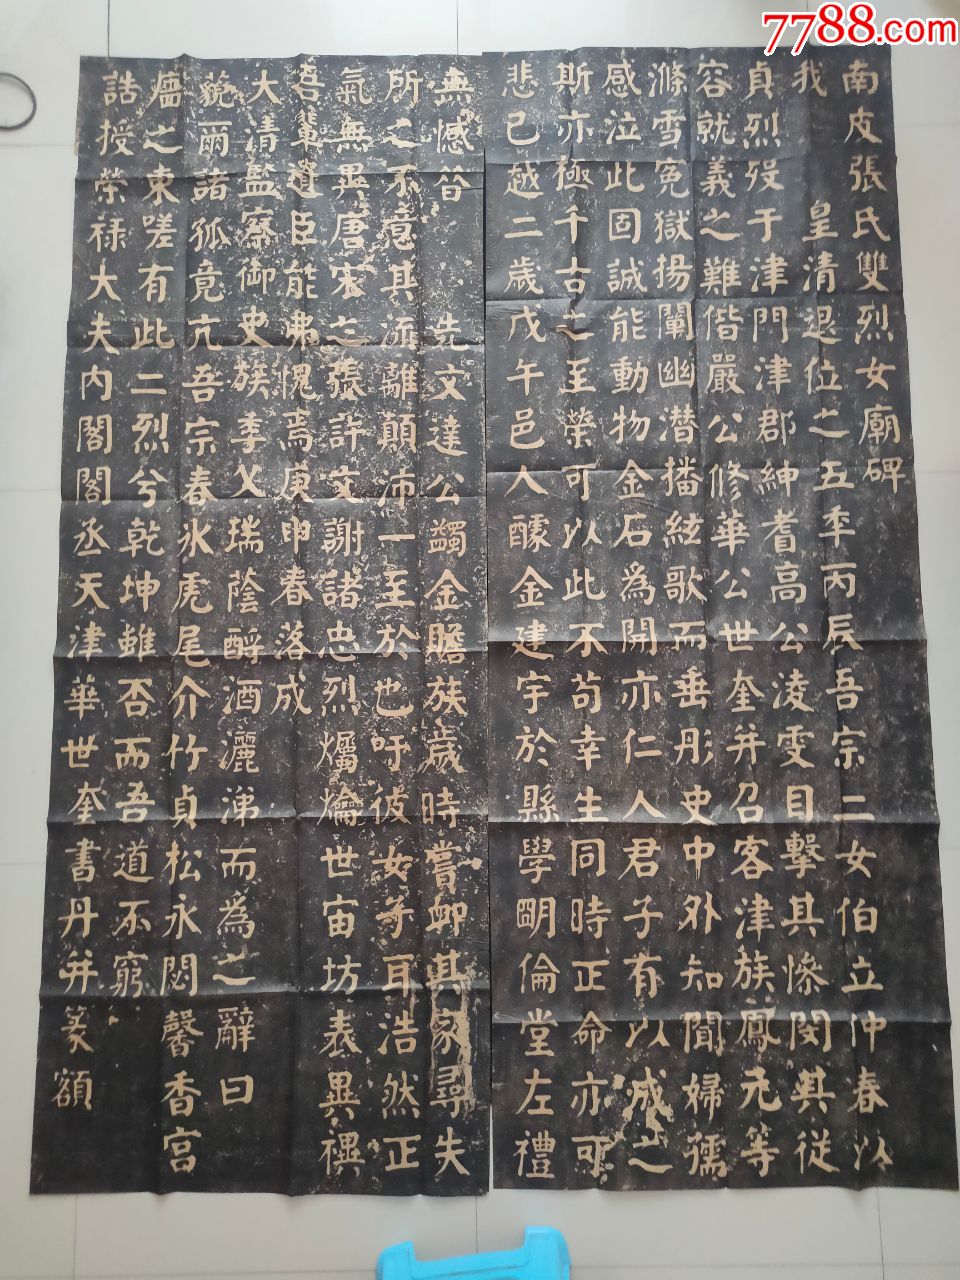 7788.com
南皮張氏雙烈女廟碑
我 皇清退位之五季丙辰吾宗二女伯立仲春以
貞烈歿于津門津郡紳耆高公淩雯目擊其慘閔其從
容就義之難偕嚴公修華公世奎并召客津族鳳元等
滌雪冤獄揚闡幽潛播絃歌而垂彤史中外知聞婦孺
感泣此固誠能動物金石為開亦仁人君子有以成之
斯亦極千古之至榮可以此不苟幸生同時正命亦可
悲已越二歲戊午邑人醵金建宇於縣學明倫堂左禮
無憾昔 先文達公蠲金贍族歲時嘗卹其家尋失
所之不意其流離顛沛一至於也吁彼女等耳浩然正
氣無異唐宋之張許文謝諸忠烈爥爚世宙坊表異禩
吾輩遺臣能弗愧焉庚申春落成
大清監察御史族季父瑞蔭酹酒灑涕而為之辭曰
藐爾諸孤竟亢吾宗春冰虎尾介竹貞松永閟馨香宮
牆之東嗟有此二烈兮乾坤雖否而吾道不窮
誥授榮祿大夫內閣閣丞天津華世奎書丹并篆額